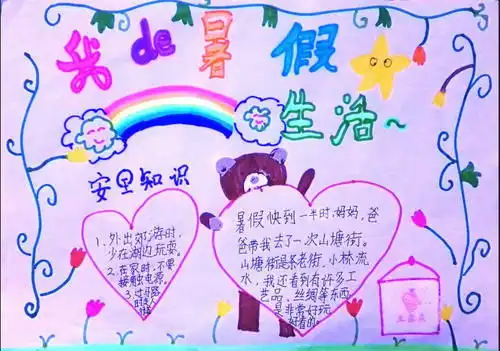 我de暑假
生活~
安里知识
1、外出郊游时,
少在湖边玩耍。
2、在家时,不要
接触电源。
3、过马路
暑假快到一半时,妈妈,爸
爸带我去了一次山塘街。
山塘街是条老街,小林流
水,我还看到有许多工
艺品,丝绸等东西
是非常好玩
好看的。